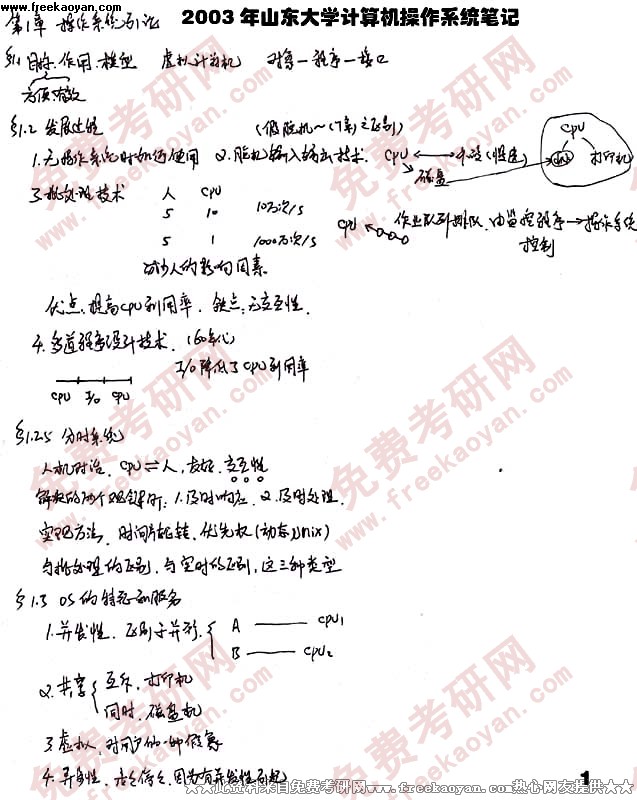 www.freekaoyan.com
2003年山东大学计算机操作系统笔记
第1章 操作系统引论
§1.1 目标、作用、模型 虚拟计算机 对等—程序—接口
方便、有效
§1.2 发展过程
1.无操作系统时的 使用 2.脱机输入输出技术. CPU 卡片(慢速)
磁盘
CPU
打印机
3.批处理技术 人 CPU
5 10 10万次/S
5 1 1000万次/S
CPU 作业队列排队,由监控程序→操作系统
控制
减少人的影响因素
优点:提高CPU利用率. 缺点:无交互性.
4.多道程序设计技术. (60年代)
I/O降低了CPU利用率
CPU I/O CPU
§1.2.5 分时系统
人机对话, CPU⇌人, 友好, 交互性
解决的两个关键所: 1.及时响应, 2.及时处理.
实现方法, 时间片轮转, 优先权(动态)Unix)
与批处理的区别, 与实时的区别, 这三种类型
§1.3 OS的特征和服务
1.并发性. 区别于并行.
A —— CPU1
B —— CPU2
2.共享 互斥, 打印机
同时, 磁盘机
3.虚拟, 对用户的一种假象
4.异步性, 走走停停, 因为有并发性引起
1
★★此资料来自免费考研网www.freekaoyan.com热心网友提供★★
免费考研网
www.freekaoyan.com